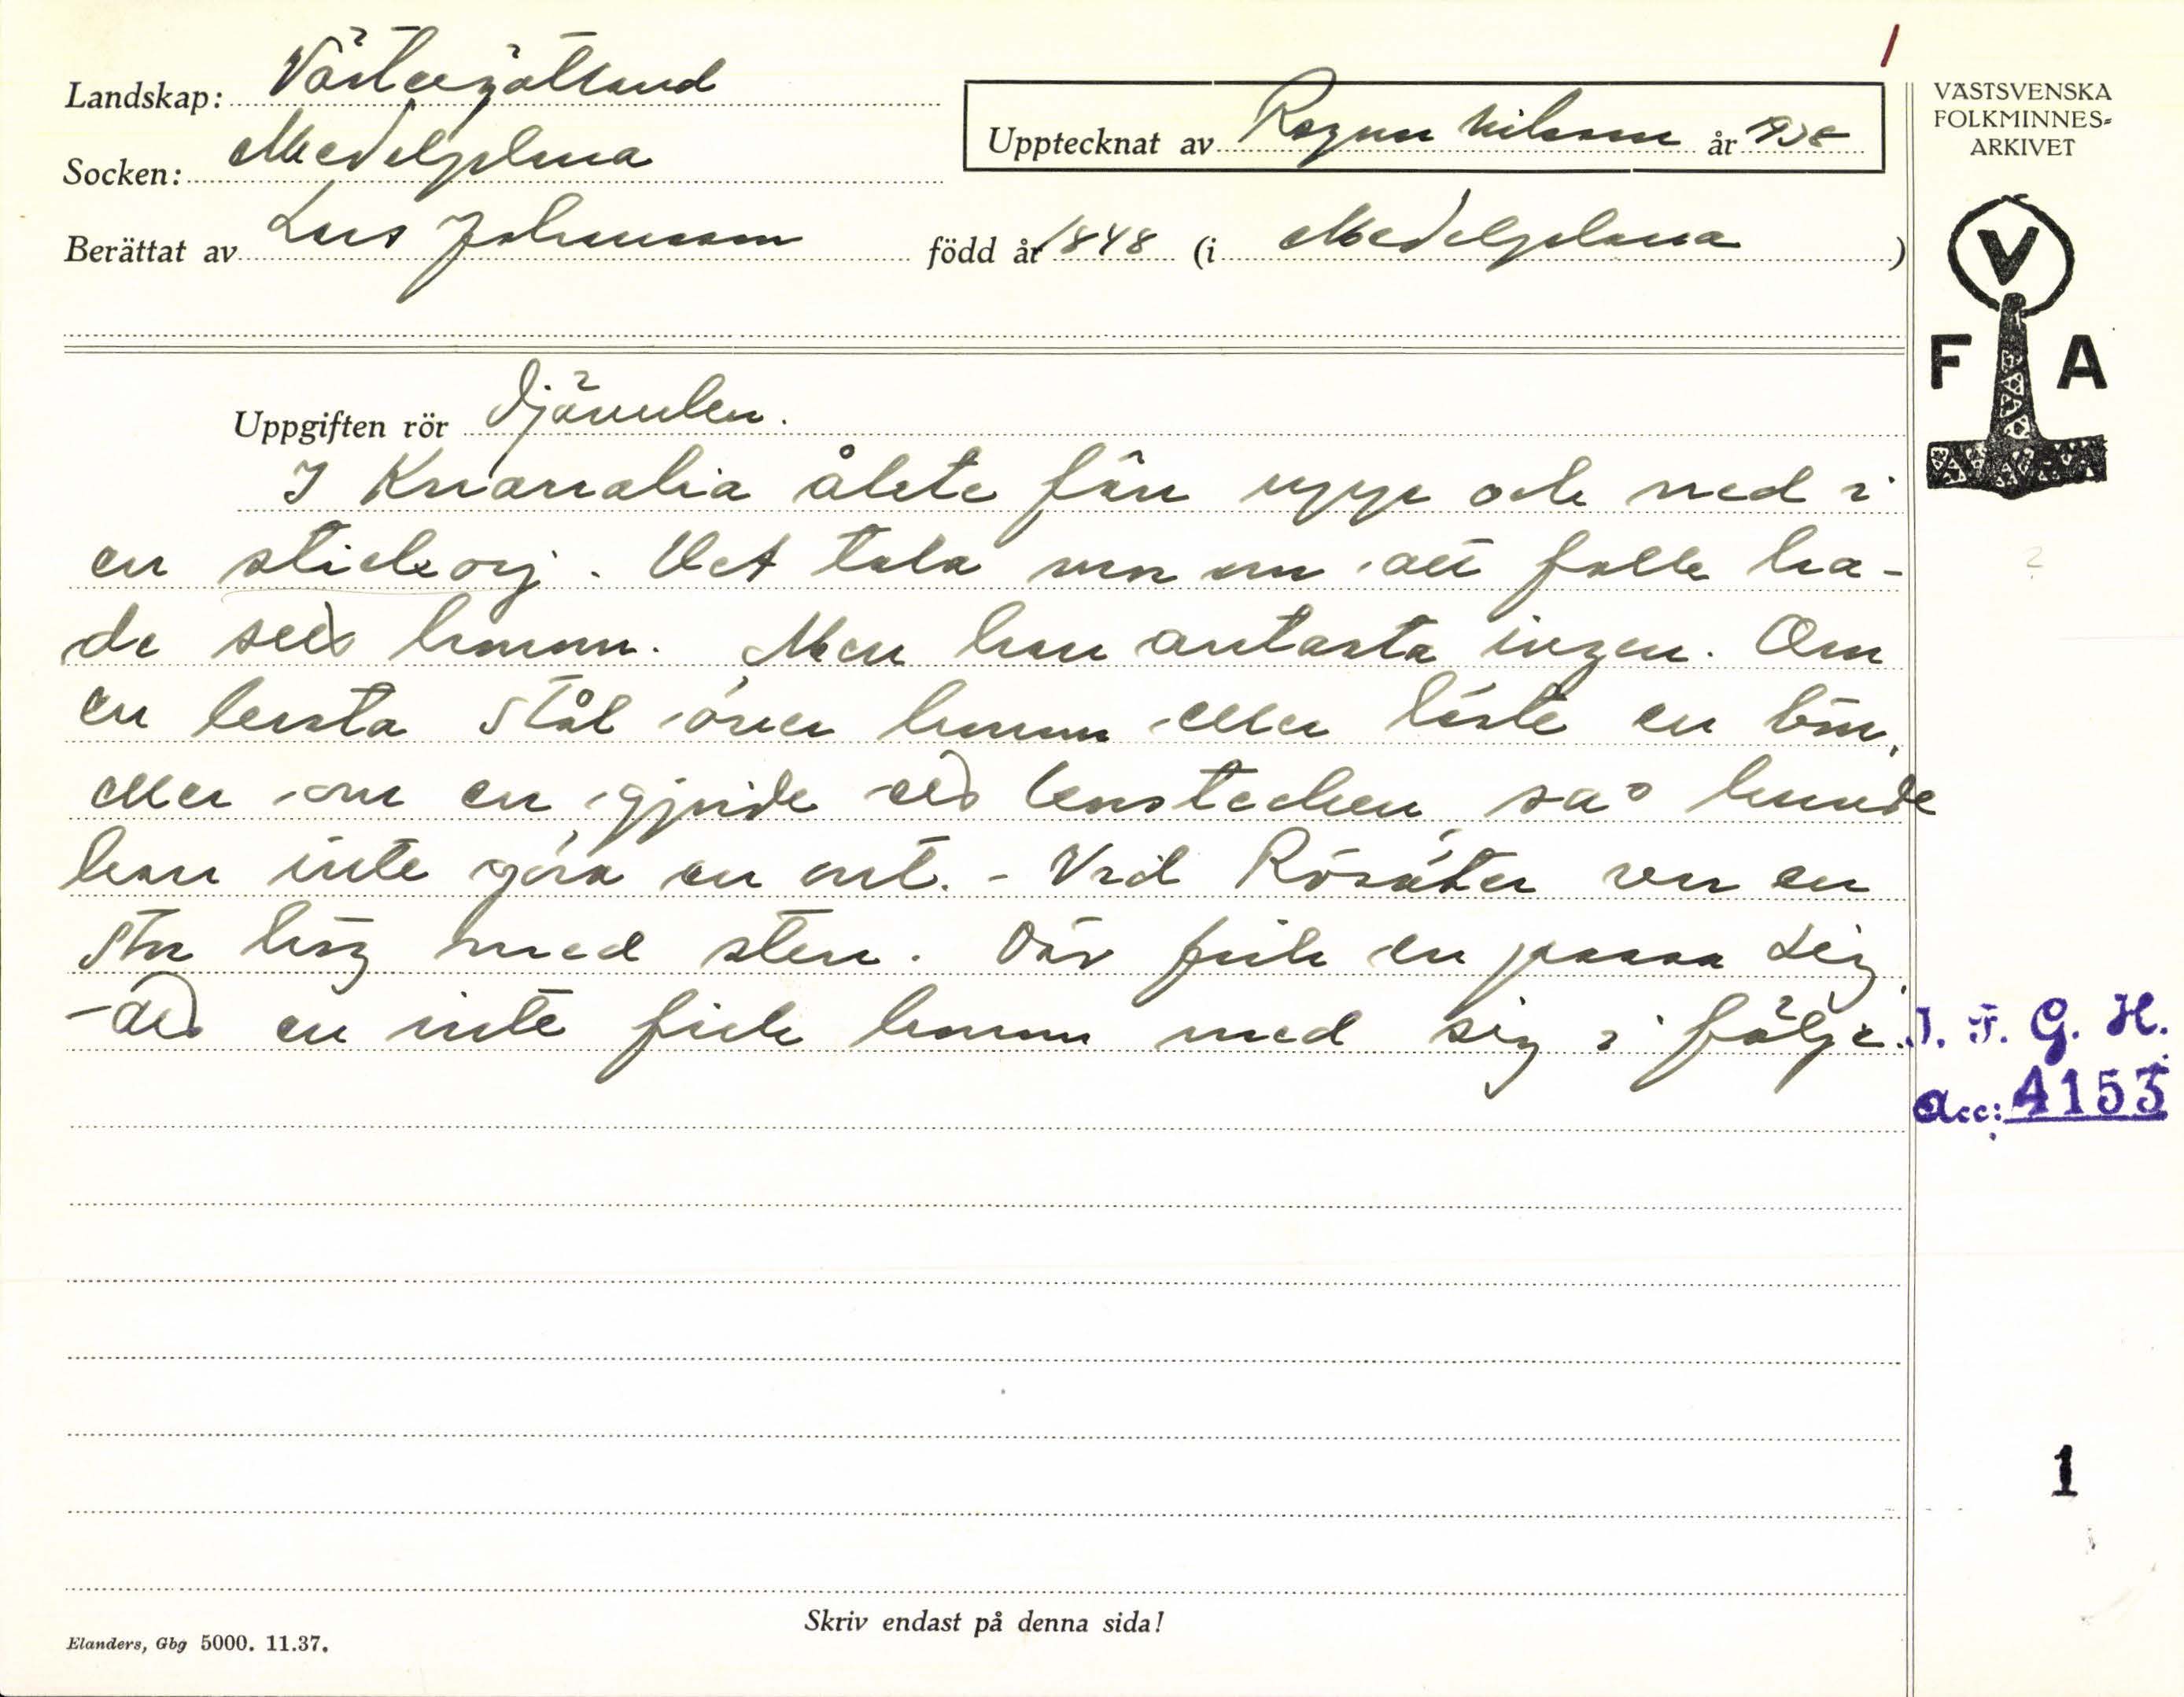 1
Landskap: Västergötland
Upptecknat av Ragnar Nilsson år 1938
VÄSTSVENSKA
FOLKMINNES-
ARKIVET
Socken: Medelplana
Berättat av Lars Johansson född år 1848 (i Medelplana)
V
F A
Uppgiften rör Djävulen.
I åkte fan upp och ned i
en stickorj. Det tala om att folk ha-
de sett honom. Men han antasta ingen. Om
en kasta stål över honom eller läste en bön,
eller om en gjorde korstecken, så kunde
han inte göra en ont. - Vid Rösäter var en
stor hög med sten. Där fick en passa sig,
en inte fick honom med sig i följe.
I. F. G. H.
Acc: 4153
1
Skriv endast på denna sida!
Elanders, Gbg 5000. 11.37.